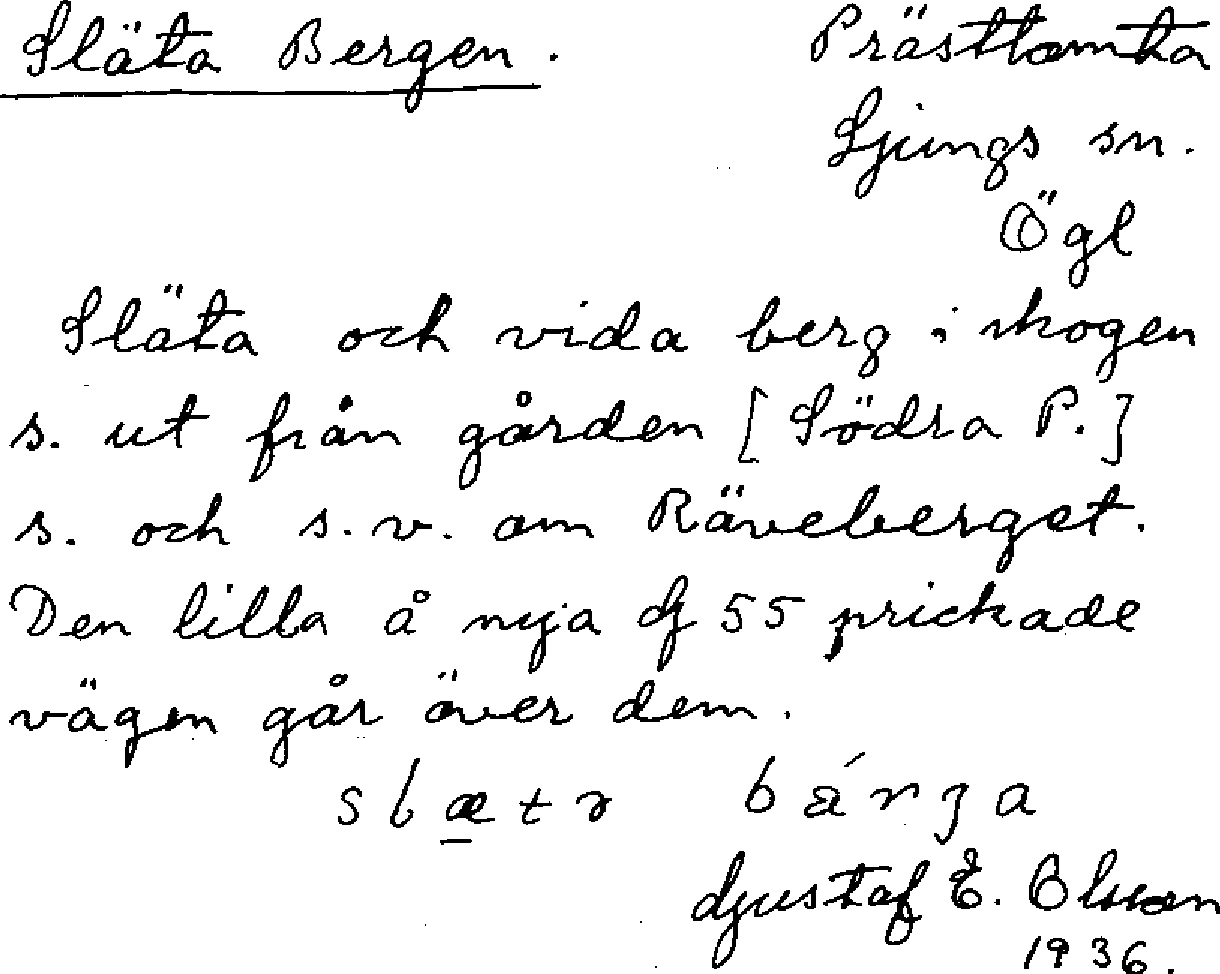 Släta Bergen.
Prästtomta
Ljungs sn.
Ögl
Släta och vida berg i skogen
s. ut från gården [Södra P.]
s. och s.v. om Räveberget.
Den lilla å nya 55 prickade
vägen går över dem.
Gustaf E. Olsson
1936.